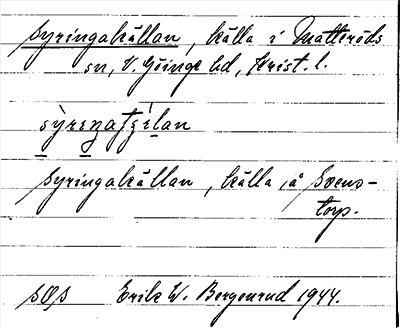 Syringakällan, källa i Matteröds
sn, V. Göinge hd, Krist. l.
Syringakällan, källa å Svens-
torp.
SOS Erik W. Bergenrud 1944.